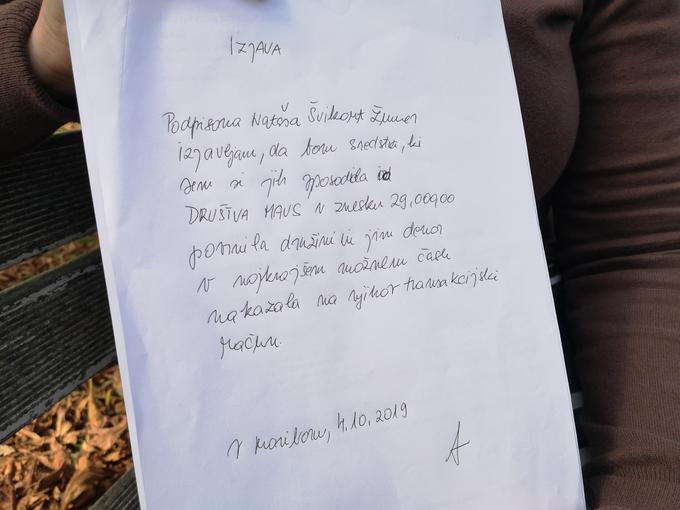 IZJAVA
Podpisana Nataša Švikart Žumer
izjavljam, da bom sredstva, ki
sem si jih sposodila od
DRUŠTVA MAUS v znesku 29.000,00
povrnila družini in jim denar
v najkrajšem možnem času
nakazala na njihov transakcijski
račun.
V Mariboru, 4.10.2019